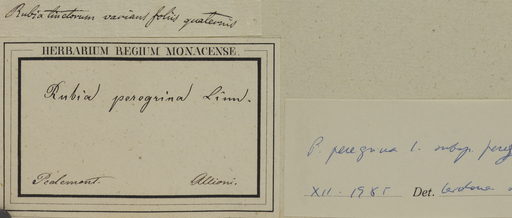 Rubia tinctorum varians foliis quaternis
HERBARIUM REGIUM MONACENSE.
Rubia peregrina Linn.
Pedemont. Allioni.
R. peregrina L. subsp.
XII. 1985 Det. Cardona